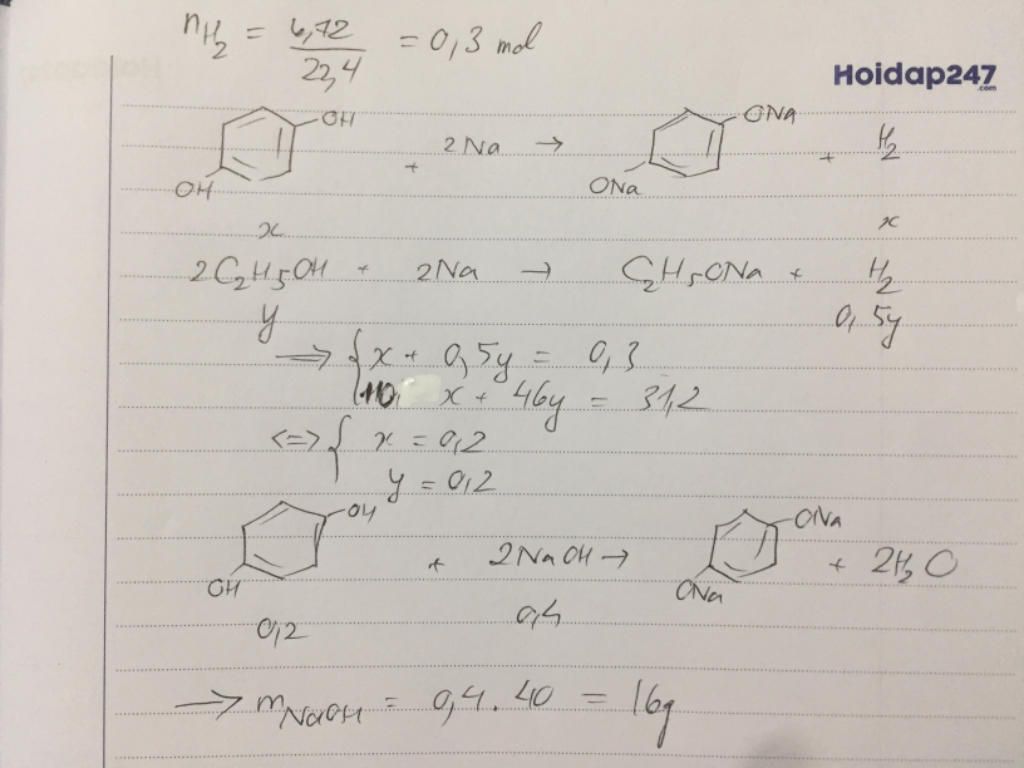 nH2 = 6,72 / 22,4 = 0,3 mol
Hoidap247
.com
OH OH + 2Na → ONa ONa + H2
x x
2C2H5OH + 2Na → C2H5ONa + H2
y 0,5y
⟹ { x + 0,5y = 0,3
110 x + 46y = 31,2
<=> { x = 0,2
y = 0,2
OH OH + 2NaOH → ONa ONa + 2H2O
0,2 0,4
→ mNaOH = 0,4.40 = 16g